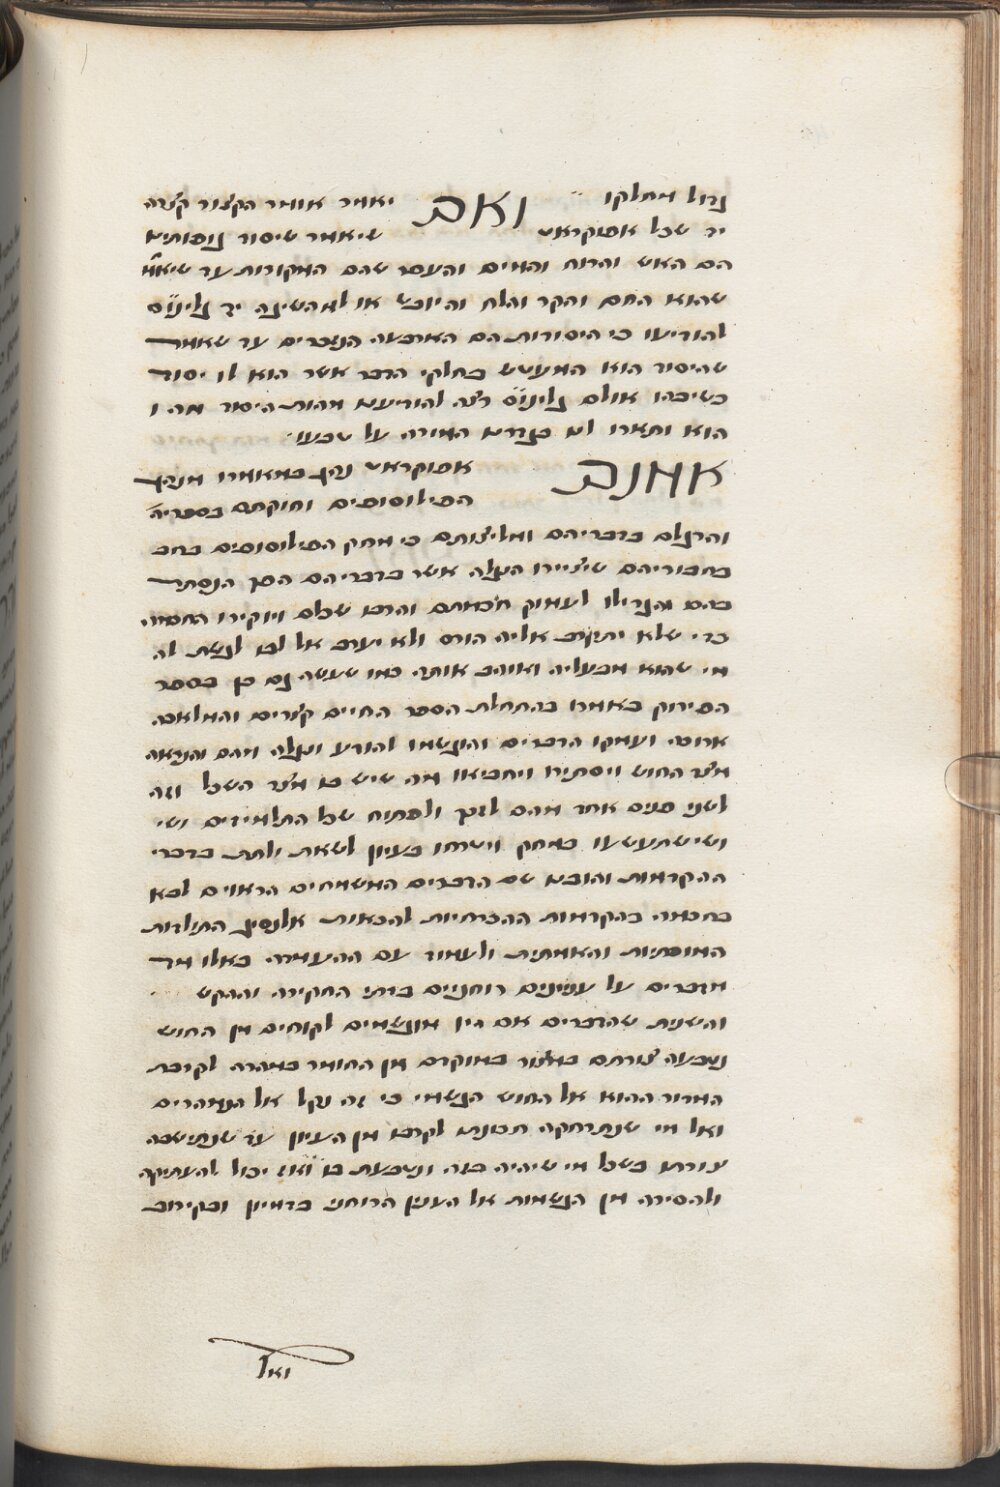 גדול מחלקו ואם יאמר אומר הקצור קצרה
יד שכל אפוקראט שיאמר שיסוד גופותינו
הם האש והרוח והמים והעפר שהם המקורות עד שיאמ'
שהוא החם והקר והלח והיובש או למה שינה יד גלינוס
להודיענו כי היסודות הם הארבעה הנזכרים עד שאמר
שהיסוד הוא המעט שבחלקי הדבר אשר הוא לו יסוד
כשיבהו אולם גלינוס רצה להודיענו מהות היסוד מה ו
הוא ותארו לנו בגדרנו המורה על טבעו
אמנם אפוקראט נהג במאמרו מנהג
הפילוסופים וחוקתם בספריה
והרגלם בדבריהם ומליצותם כי מחק הפילוסופים בחב
בחבוריהם שיציירו הנגלה אשר בדבריהם הפך הנסתר
בהם והגדילו לעמוק חכמתם והרבו שכלם ויוקירו החכמה
כדי שלא יתקרב אליה הורס ולא יערב אל לבו לגשת לה
מי שהוא מבעליה ואוהב אותה כמו שעשה גם כן בספר
הפרקים באמרו בהתחלת הספר החיים קצרים והמלאכה
ארוכה ועמקו הדברים והוגשמו להודע ונגלה מהם והנראה
מצד החוש ויסתירו ויחביאו מה שיש בו מצד השכל וזה
לשני פנים אחד מהם לזכך ולפתוח שכל התלמידים ושי
ושישתעשעו במחק וישוחו בעיון לשאת ולתת בדברי
ההקדמות והובנו שם הדברים המשמחים הראוים לבא
בחכמה בהקדמות ההכרחיות להבאות אלנסיג התולדות
המופתיות והאמתיות ולעמוד עם ההעמדה כאלו מד
מדברים על ענינים רוחניים בדתי החקירה וההקש
והשנית שהדברים אם היו מוגשמים לקוחים מן החוש
נטבעה צורתם בציור במוקדם מן החומר במהרה לקיבת
המדור ההוא אל החוש הגשמי כי זה נקל אל הנמהרים
ואל מי שנתרחקה תכונתו לקרבו מן העיון עד שנתישבה
צורתו בשכל מי שיהיה בזה ונטבעת בו ואז יוכל להעתיקה
ולהסירה מן הגשמות אל הענין הרוחני בדמיון ובקירוב
ואל